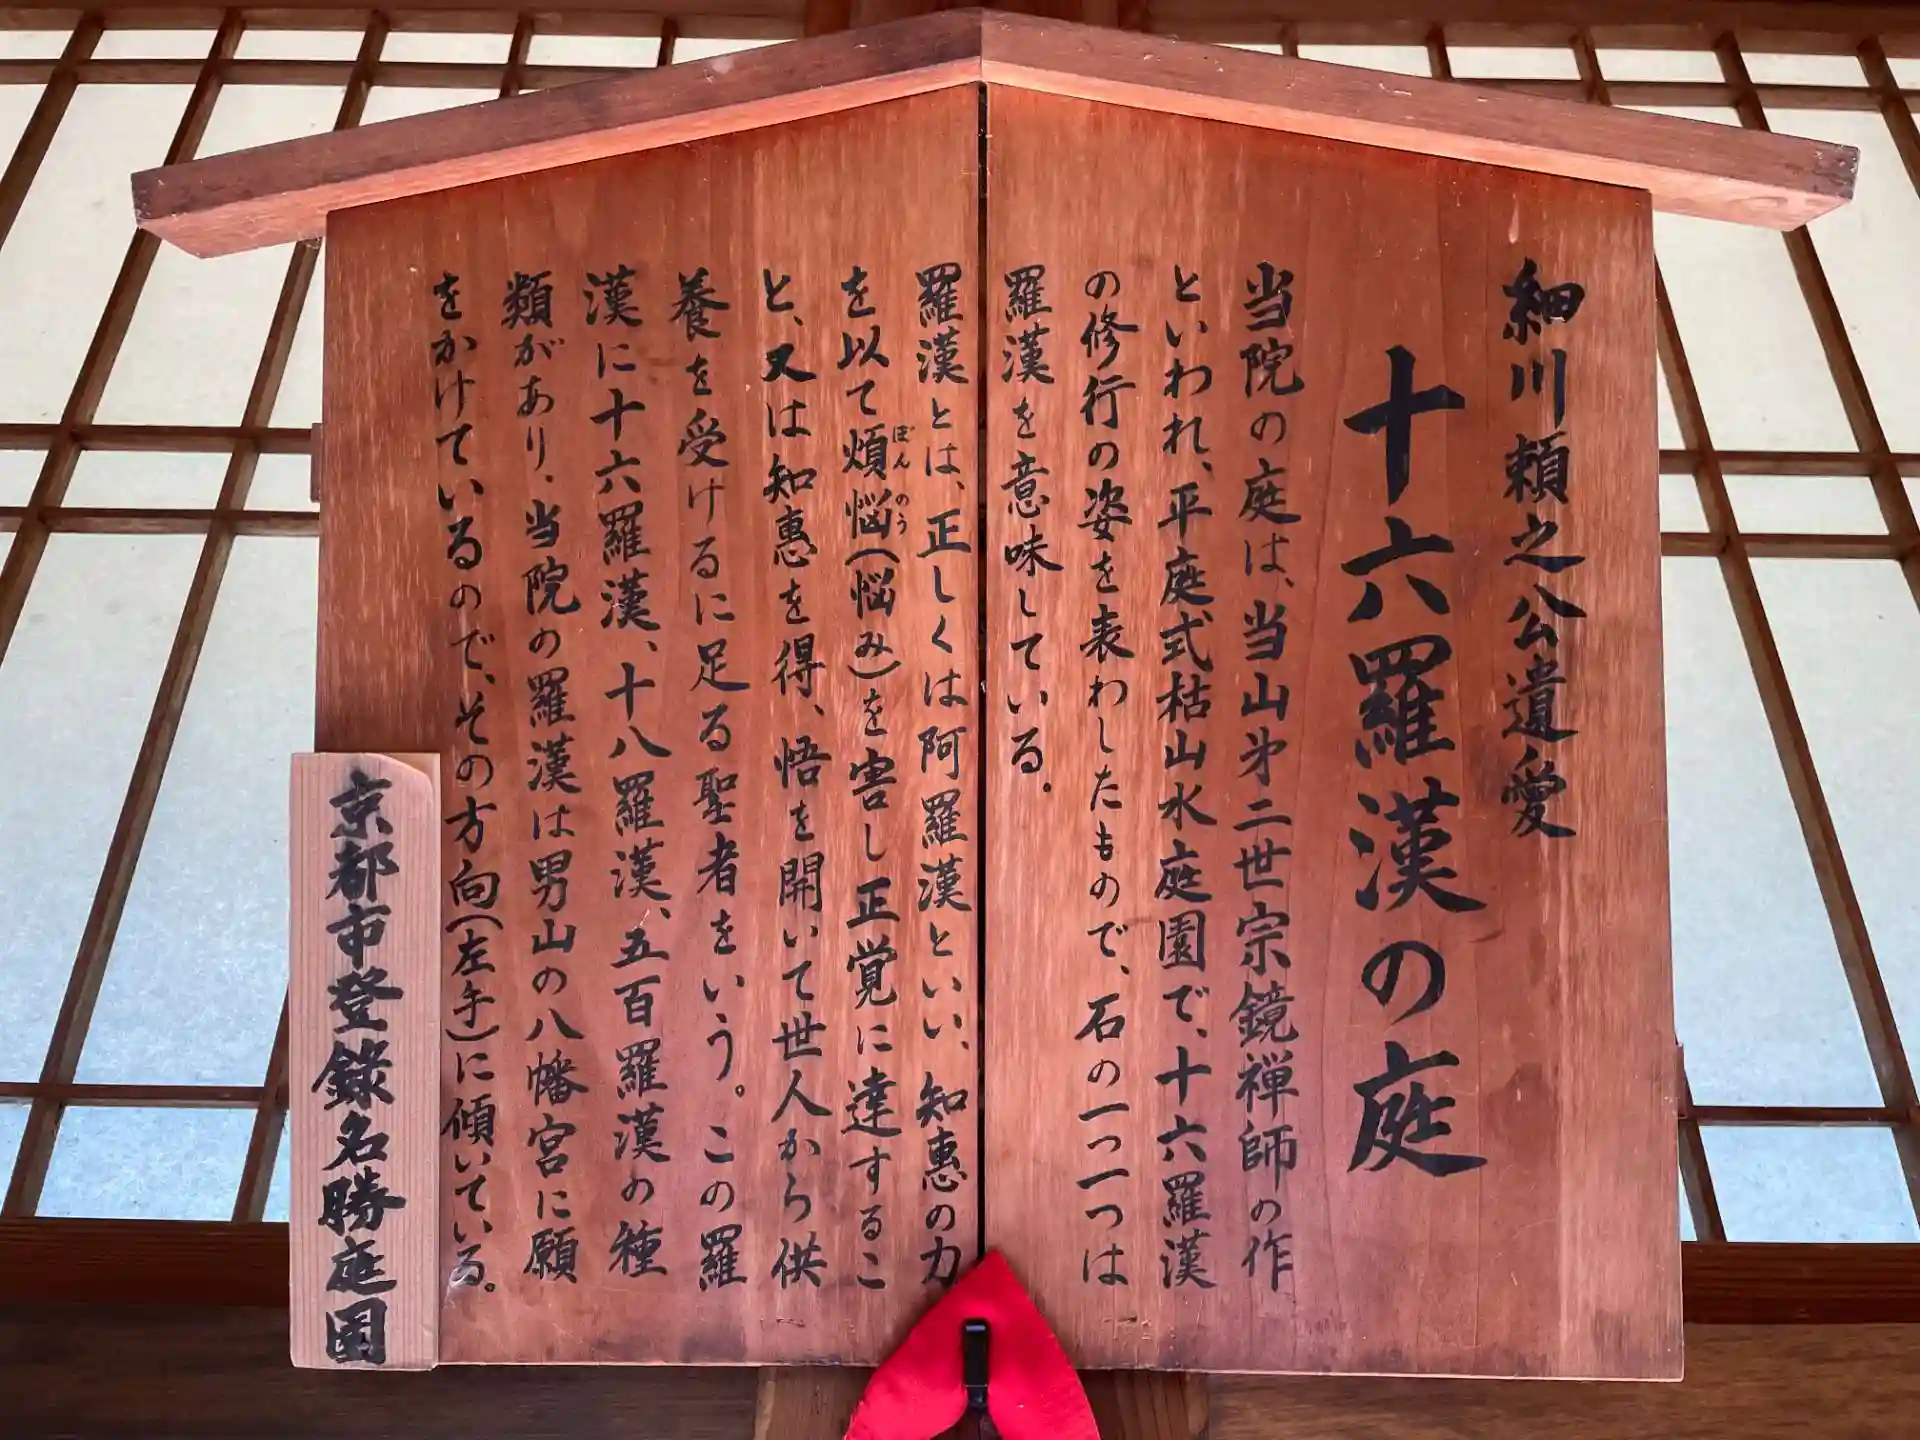 細川頼之公遺愛
十六羅漢の庭
当院の庭は、当山㐧二世宗鏡禅師の作
といわれ、平庭式枯山水庭園で、十六羅漢
の修行の姿を表わしたもので、石の一つ一つは
羅漢を意味している。
羅漢とは、正しくは阿羅漢といい、知恵の力
を以て煩悩(悩み)を害し正覚に達するこ
ぼんのう
と、又は知恵を得、悟を開いて世人から供
養を受けるに足る聖者をいう。この羅
漢に十六羅漢、十八羅漢、五百羅漢の種
類があり、当院の羅漢は男山の八幡宮に願
をかけているので、その方向(左手)に傾いている。
京都市登録名勝庭園